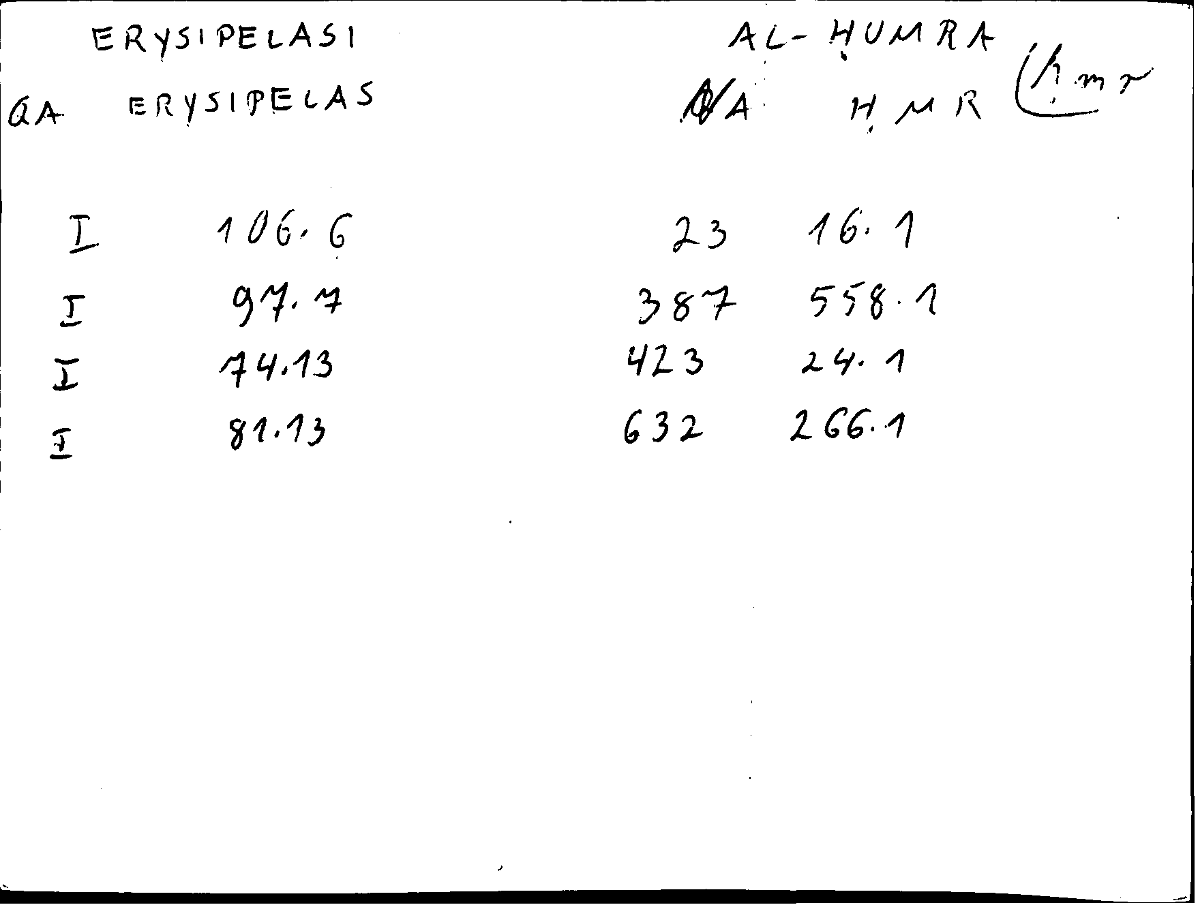 ERYSIPELASI AL-ḤUMRA
QA ERYSIPELAS NA ḤMR (ḥmr
I 106.6 23 16.1
I 97.7 387 558.1
I 74.13 423 24.1
I 81.13 632 266.1